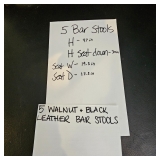 5 Bar Stools
H -
H Seat down -
Seat W -
Seat D -
5 WALNUT + BLACK
LEATHER BAR STOOLS